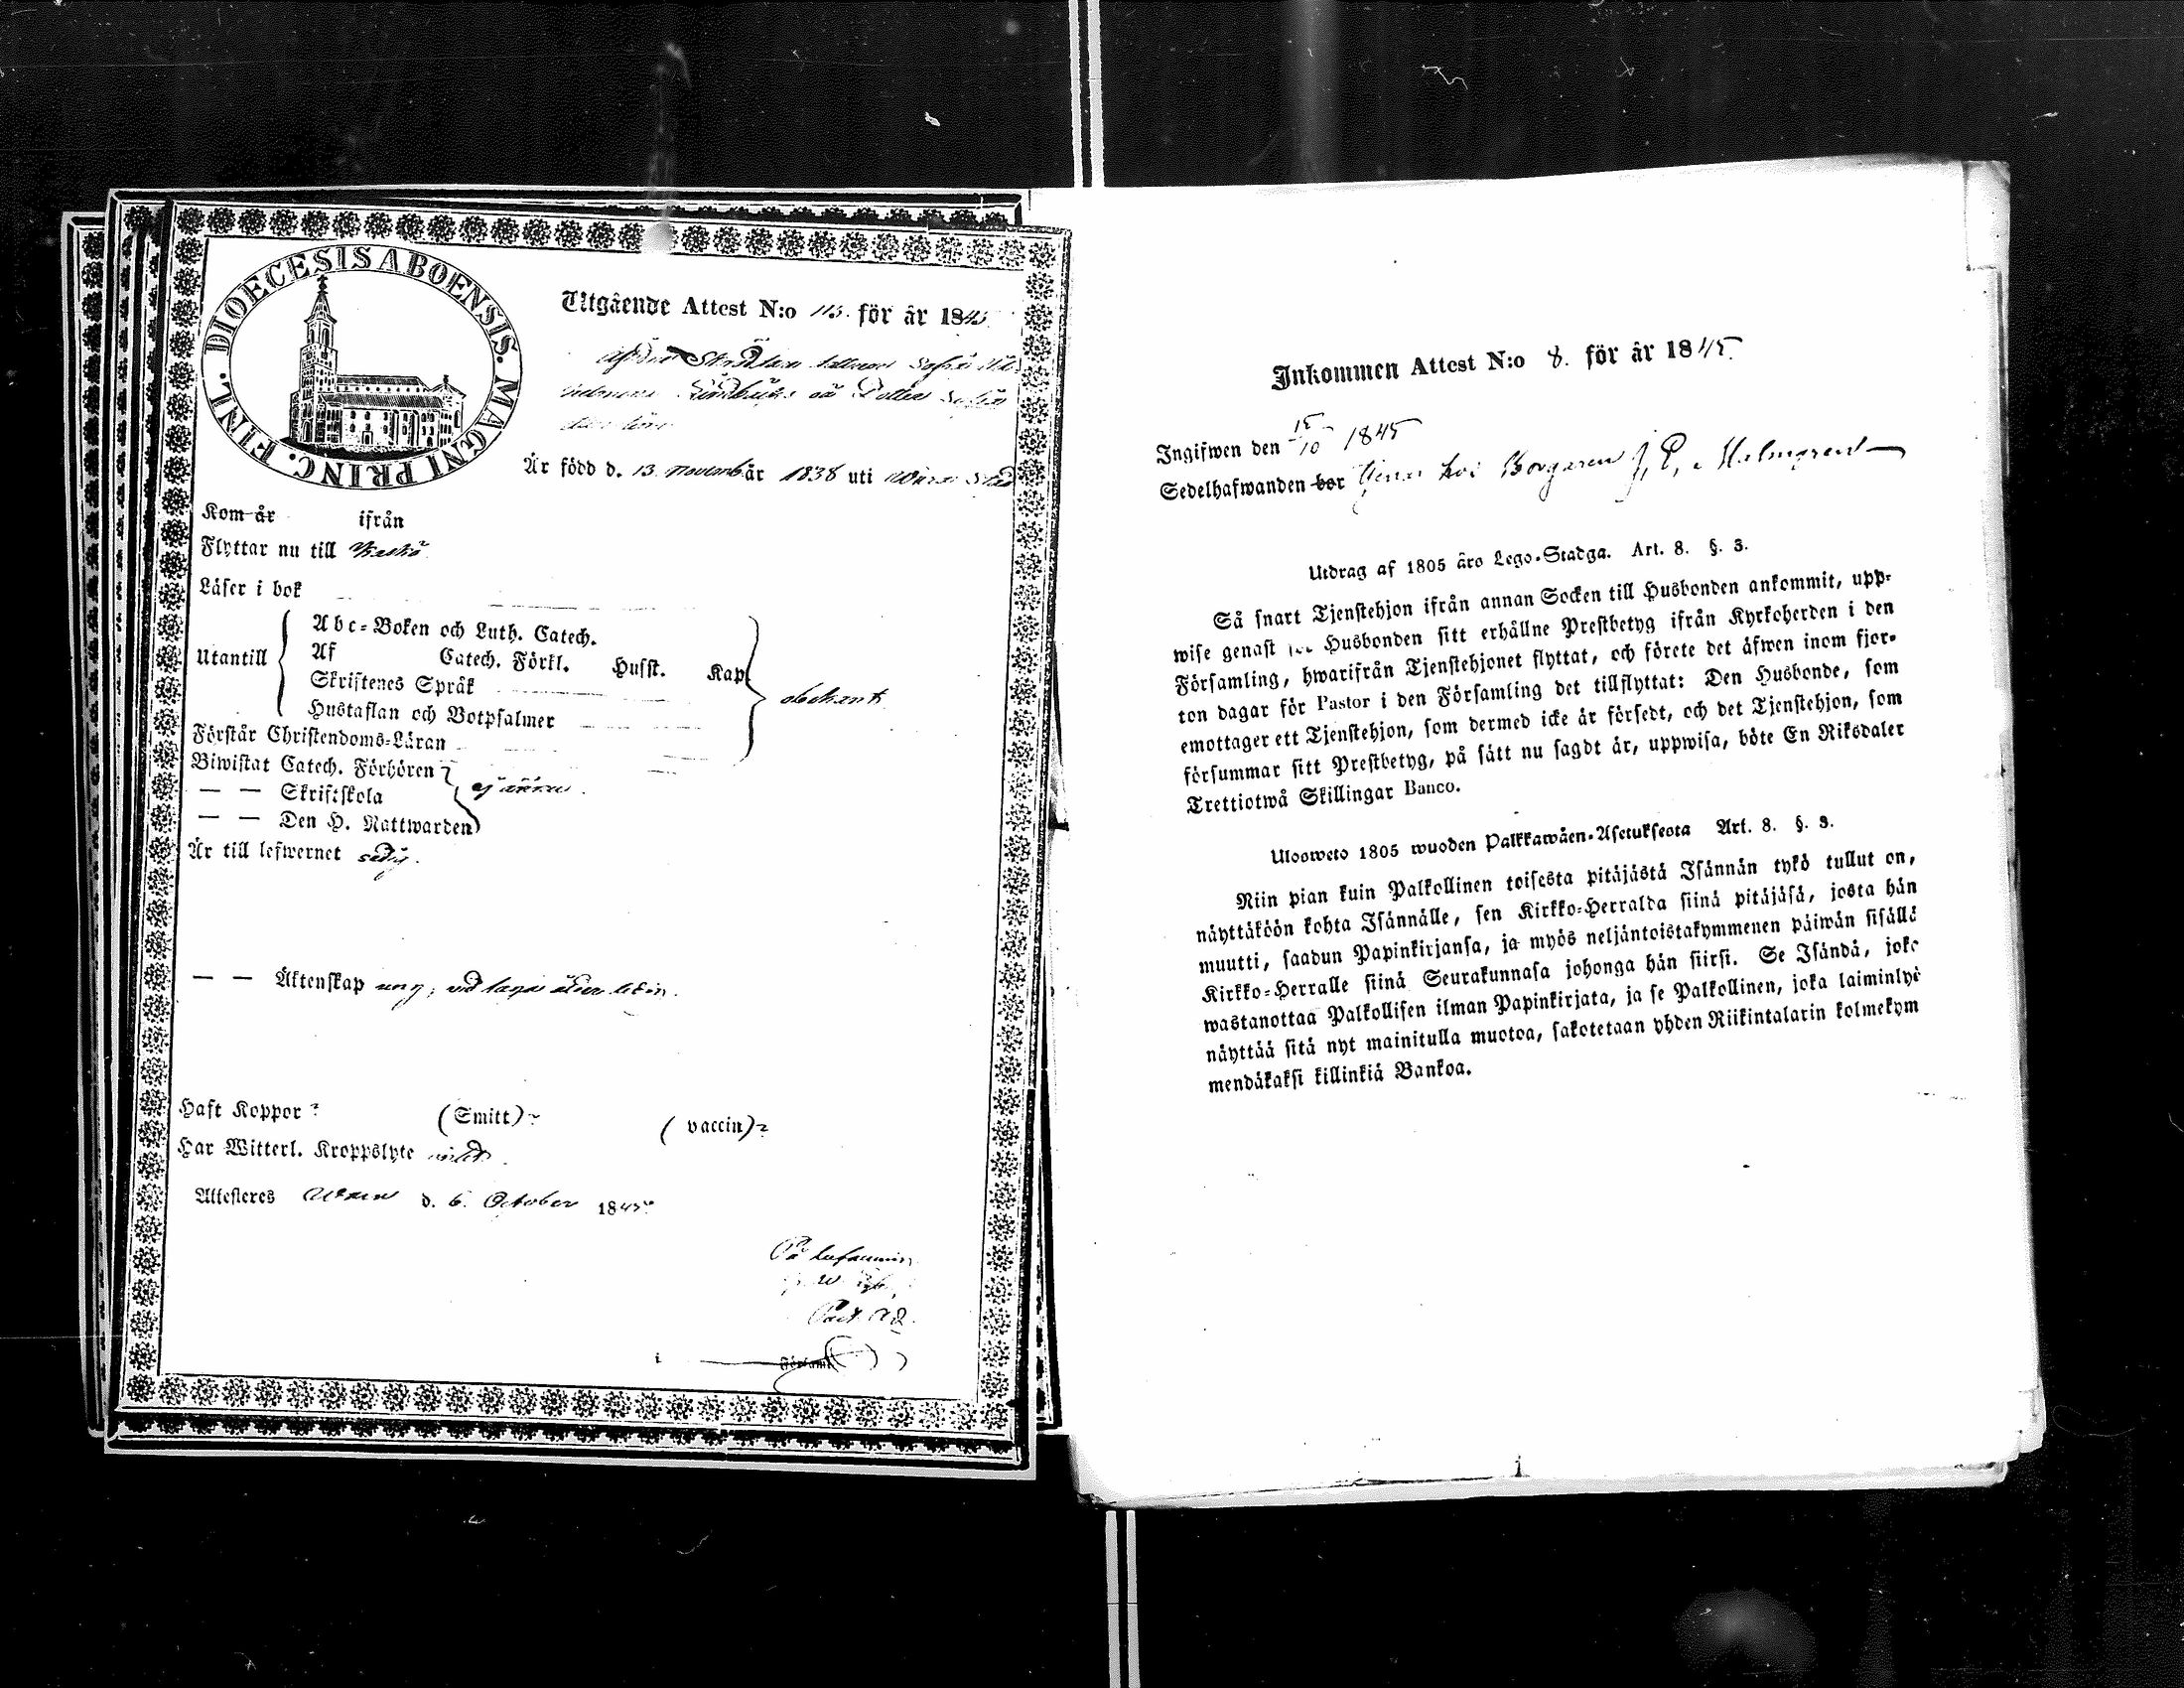 DIOECESIS ABOENSIS. MAGNI PRINC. FINL.
Utgående Attest N:o 113. för år 1845
Sofia
och Dotter Sofia
Är född d. 13. Novemb. år 1838 uti Wasa Stad
Kom år ifrån
Flyttar nu till Kaskö
Läser i bok
Utantill
Abc-Boken och Luth. Catech.
Af Catech. Förkl. Husst. Kap.
Skriftenes Språk
Hustaflan och Botpsalmer
obekant
Förstår Christendoms-Läran
Biwistat Catech. Förhören
— — Skriftskola
— — Den H. Nattwarden
ej ännu.
Är till lefwernet sedig.
— — Äktenskap ung, vid laga ålder ledig.
Haft Koppor ? (Smitt) ? (vaccin) ?
Har Witterl. Kroppslyte
Attesteres Wasa d. 6. October 1845.
På
Past. Adj.
i Församl.
Inkommen Attest N:o 8. för år 1845.
Ingifwen den 15/10 1845
Sedelhafwanden bor tjenar hos Borgaren J. E. Malmgren
Utdrag af 1805 års Lego-Stadga. Art. 8. §. 3.
Så snart Tjenstehjon ifrån annan Socken till Husbonden ankommit, upp-
wise genast för Husbonden sitt erhållne Prestbetyg ifrån Kyrkoherden i den
Församling, hwarifrån Tjenstehjonet flyttat, och förete det äfwen inom fjor-
ton dagar för Pastor i den Församling det tillflyttat: Den Husbonde, som
emottager ett Tjenstehjon, som dermed icke är försedt, och det Tjenstehjon, som
försummar sitt Prestbetyg, på sätt nu sagdt är, uppwisa, böte En Riksdaler
Trettiotwå Skillingar Banco.
Ulosweto 1805 wuoden Palkkawäen-Asetuksesta Art. 8. §. 3.
Niin pian kuin Palkollinen toisesta pitäjästä Isännän tykö tullut on,
näyttäköön kohta Isännälle, sen Kirkko-Herralda siinä pitäjäsä, josta hän
muutti, saadun Papinkirjansa, ja myös neljäntoistakymmenen päiwän sisällä
Kirkko-Herralle siinä Seurakunnasa johonga hän siirsi. Se Isändä, joka
wastanottaa Palkollisen ilman Papinkirjata, ja se Palkollinen, joka laiminlyö
näyttää sitä nyt mainitulla muotoa, sakotetaan yhden Riikintalarin kolmekym
mendäkaksi killinkiä Bankoa.